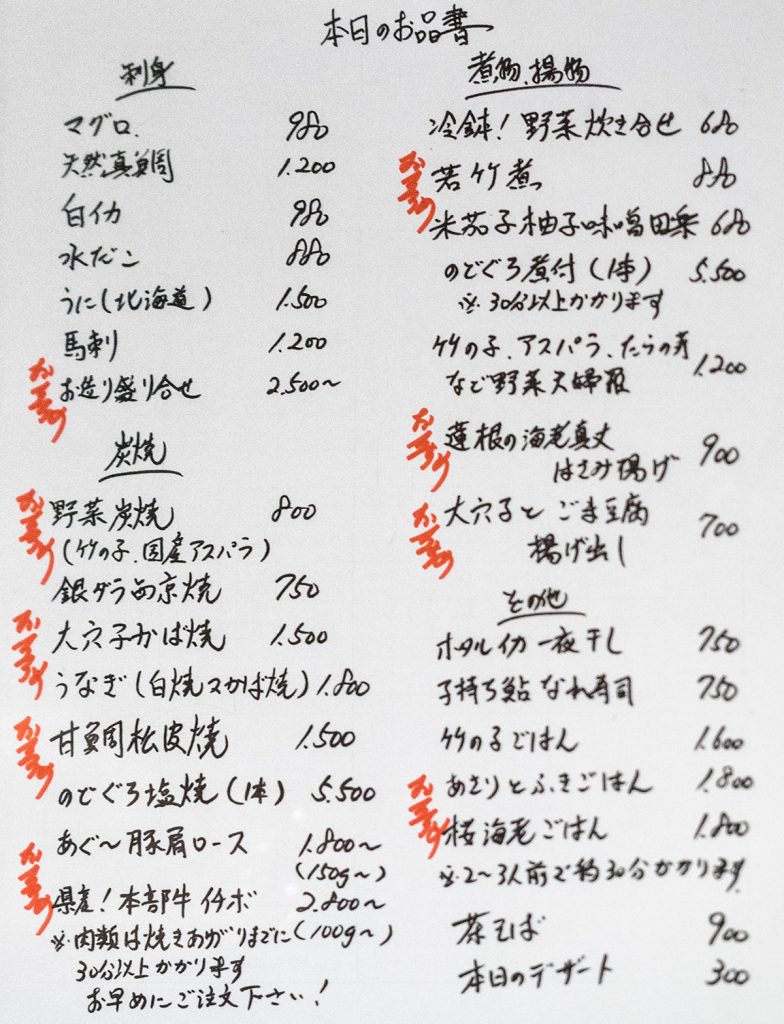 本日のお品書
刺身
マグロ 980
天然真鯛 1.200
白イカ 980
水だこ 880
うに(北海道) 1.500
馬刺 1.200
おすすめ お造り盛り合せ 2.500〜
炭焼
おすすめ 野菜炭焼 800
(竹の子、国産アスパラ)
銀ダラ西京焼 750
おすすめ 大穴子かば焼 1.500
うなぎ(白焼又かば焼) 1.800
おすすめ 甘鯛松皮焼 1.500
のどぐろ塩焼(1本) 5.500
あぐ〜豚肩ロース 1.800〜
(150g〜)
おすすめ 県産!本部牛イチボ 2.800〜
※肉類は焼きあがりまでに(100g〜)
30分以上かかります
お早めにご注文下さい!
煮物、揚物
冷鉢!野菜炊き合せ 680
おすすめ 若竹煮 880
米茄子柚子味噌田楽 680
のどぐろ煮付(1本) 5.500
※30分以上かかります
竹の子、アスパラ、たらの芽
など野菜天婦羅 1.200
おすすめ 蓮根の海老真丈
はさみ揚げ 900
おすすめ 大穴子とごま豆腐
揚げ出し 700
その他
ホタルイカ一夜干し 750
子持ち鮎なれ寿司 750
竹の子ごはん 1.600
あさりとふきごはん 1.800
おすすめ 桜海老ごはん 1.800
※2〜3人前で約30分かかります
茶そば 900
本日のデザート 300